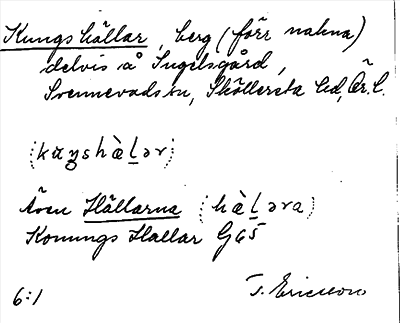 Kungs hällar, berg (förr nakna)
delvis å Ingelsgård,
Svennevads sn, Sköllersta hd, Ör. l.
(kuŋshæ̀lər)
Även Hällarna (hæ̀ləra)
Konungs Hallar G65
6:1 T. Ericsson